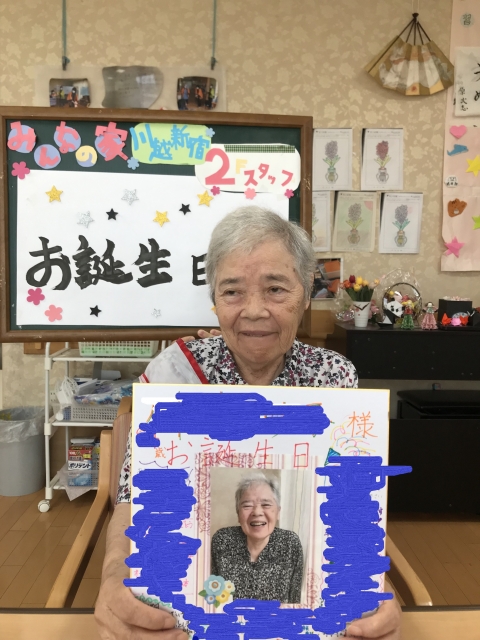 みんなの家
川越新宿
2Fスタッフ
お誕生日
様
歳
お誕生日
ポリデント